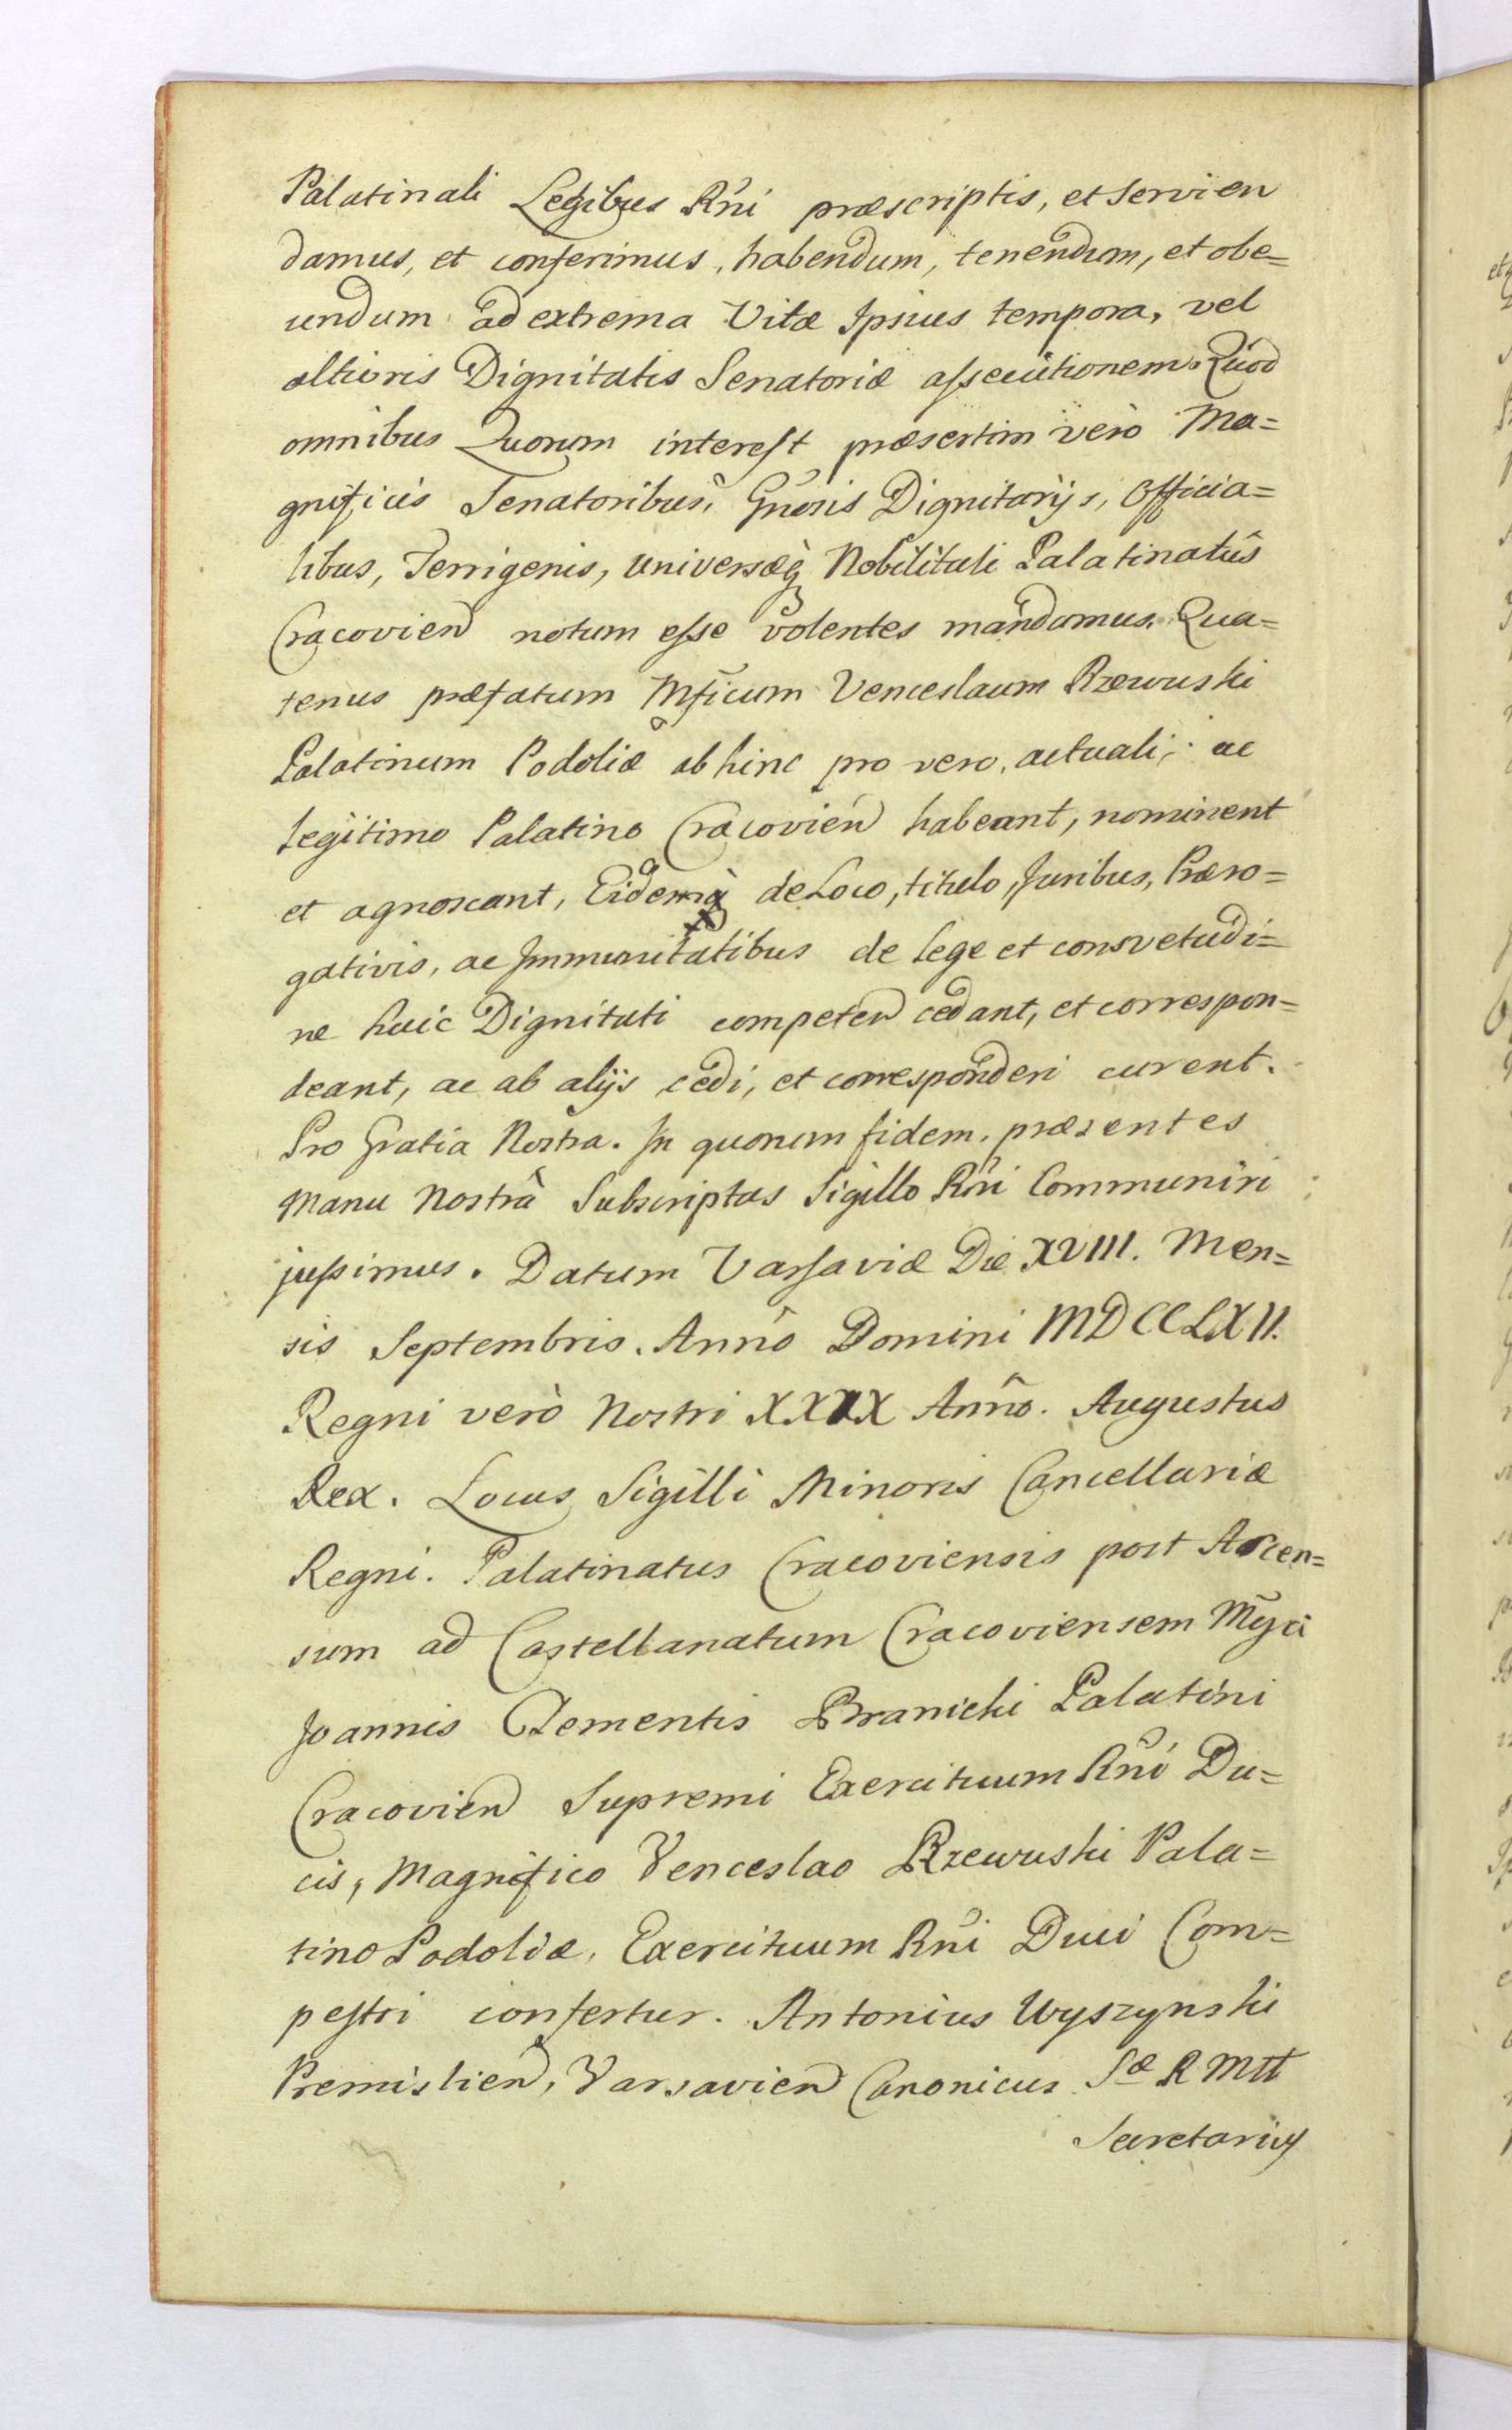 Palatinali Legibus Rñi præscriptis, et Servien
damus, et conferimus, habendum, tenendum, et obe=
undum ad extrema Vitæ Ipsius tempora, vel
altioris Dignitatis Senatoriæ aſsecutionem. Quod
omnibus Quorum intereſt præsertim verò Ma=
gnificis Senatoribus, Gñosis Dignitarijs, Officia=
libus, Terrigenis, universæq̃ Nobilitati Palatinatûs
Cracovien notum eſse volentes mandamus. Qua=
tenus præfatum Mficum Venceslaum Rzewuski
Palatinum Podoliæ abhinc pro vero, actuali, ac
legitimo Palatino Cracovien habeant, nominent
et agnoscant, Eidemq̀ de Loco, titulo, Juribus, Præro=
gativis, ac Immunitatibus de lege et consvetudi=
ne huic Dignitati competen cedant, et correspon=
deant, ac ab alijs cedi, et corresponderi curent.
Pro Gratia Nostra. In quorum fidem præsentes
Manu Nostrâ Subscriptas Sigillo Rñi Communiri
juſsimus. Datum Varſaviæ Die XVIII. Men=
sis Septembris. Annô Domini MDCCLXII.
Regni verò Nostri XXIX Annô. Augustus
Rex. Locus Sigilli Minoris Cancellariæ
Regni. Palatinatus Cracoviensis post Ascen=
sum ad Castellanatum Cracoviensem Mfci
Joannis Clementis Branicki Palatini
Cracovien Supremi Exercituum Rñi Du=
cis, Magnifico Venceslao Rzewuski Pala=
tino Podoliæ, Exercituum Rñi Duci Cam=
peſtri confertur. Antonius Wyszynski
Premislien, Varsavien Canonicus Sæ R Mtt
Secretarius